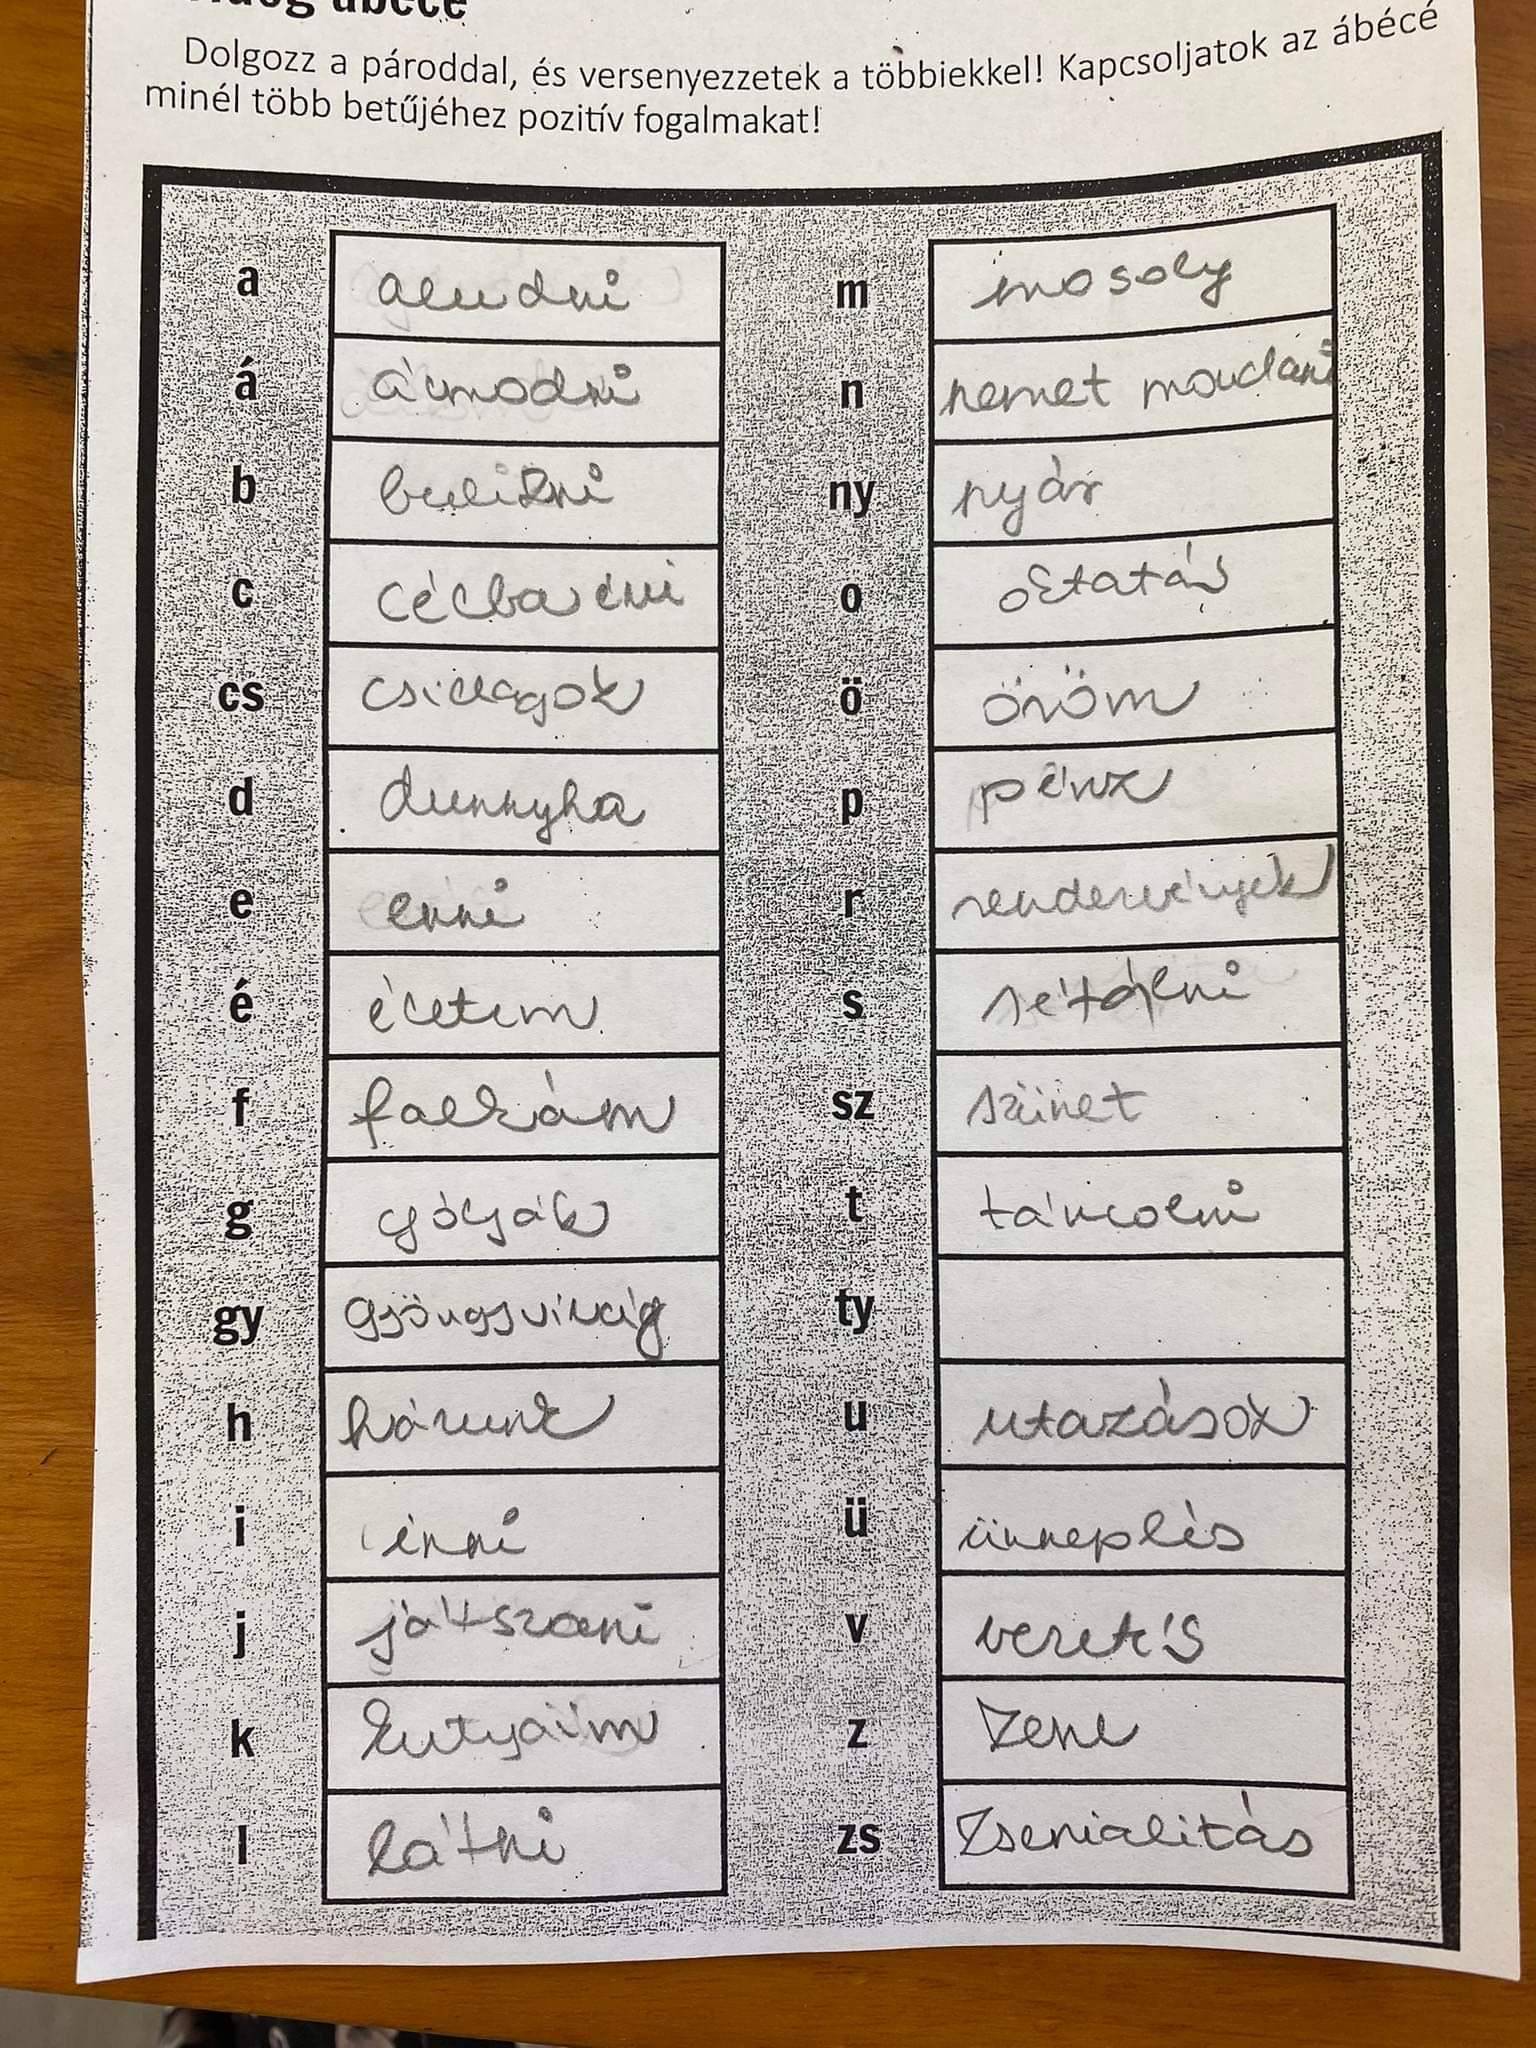 ábécé
Dolgozz a pároddal, és versenyezzetek a többiekkel! Kapcsoljatok az ábécé
minél több betűjéhez pozitív fogalmakat!
a aludni
á álmodni
b bulizni
c célba érni
cs csillagok
d dunnyha
e enni
é életem
f falkám
g gólyák
gy gyöngyvirág
h hárunk
i inni
j játszani
k kutyáim
l látni
m mosoly
n nemet mondani
ny nyár
o oktatás
ö öröm
p pénz
r rendezvények
s sétálni
sz szünet
t táncolni
ty
u utazások
ü ünneplés
v vezetés
z zene
zs zsenialitás